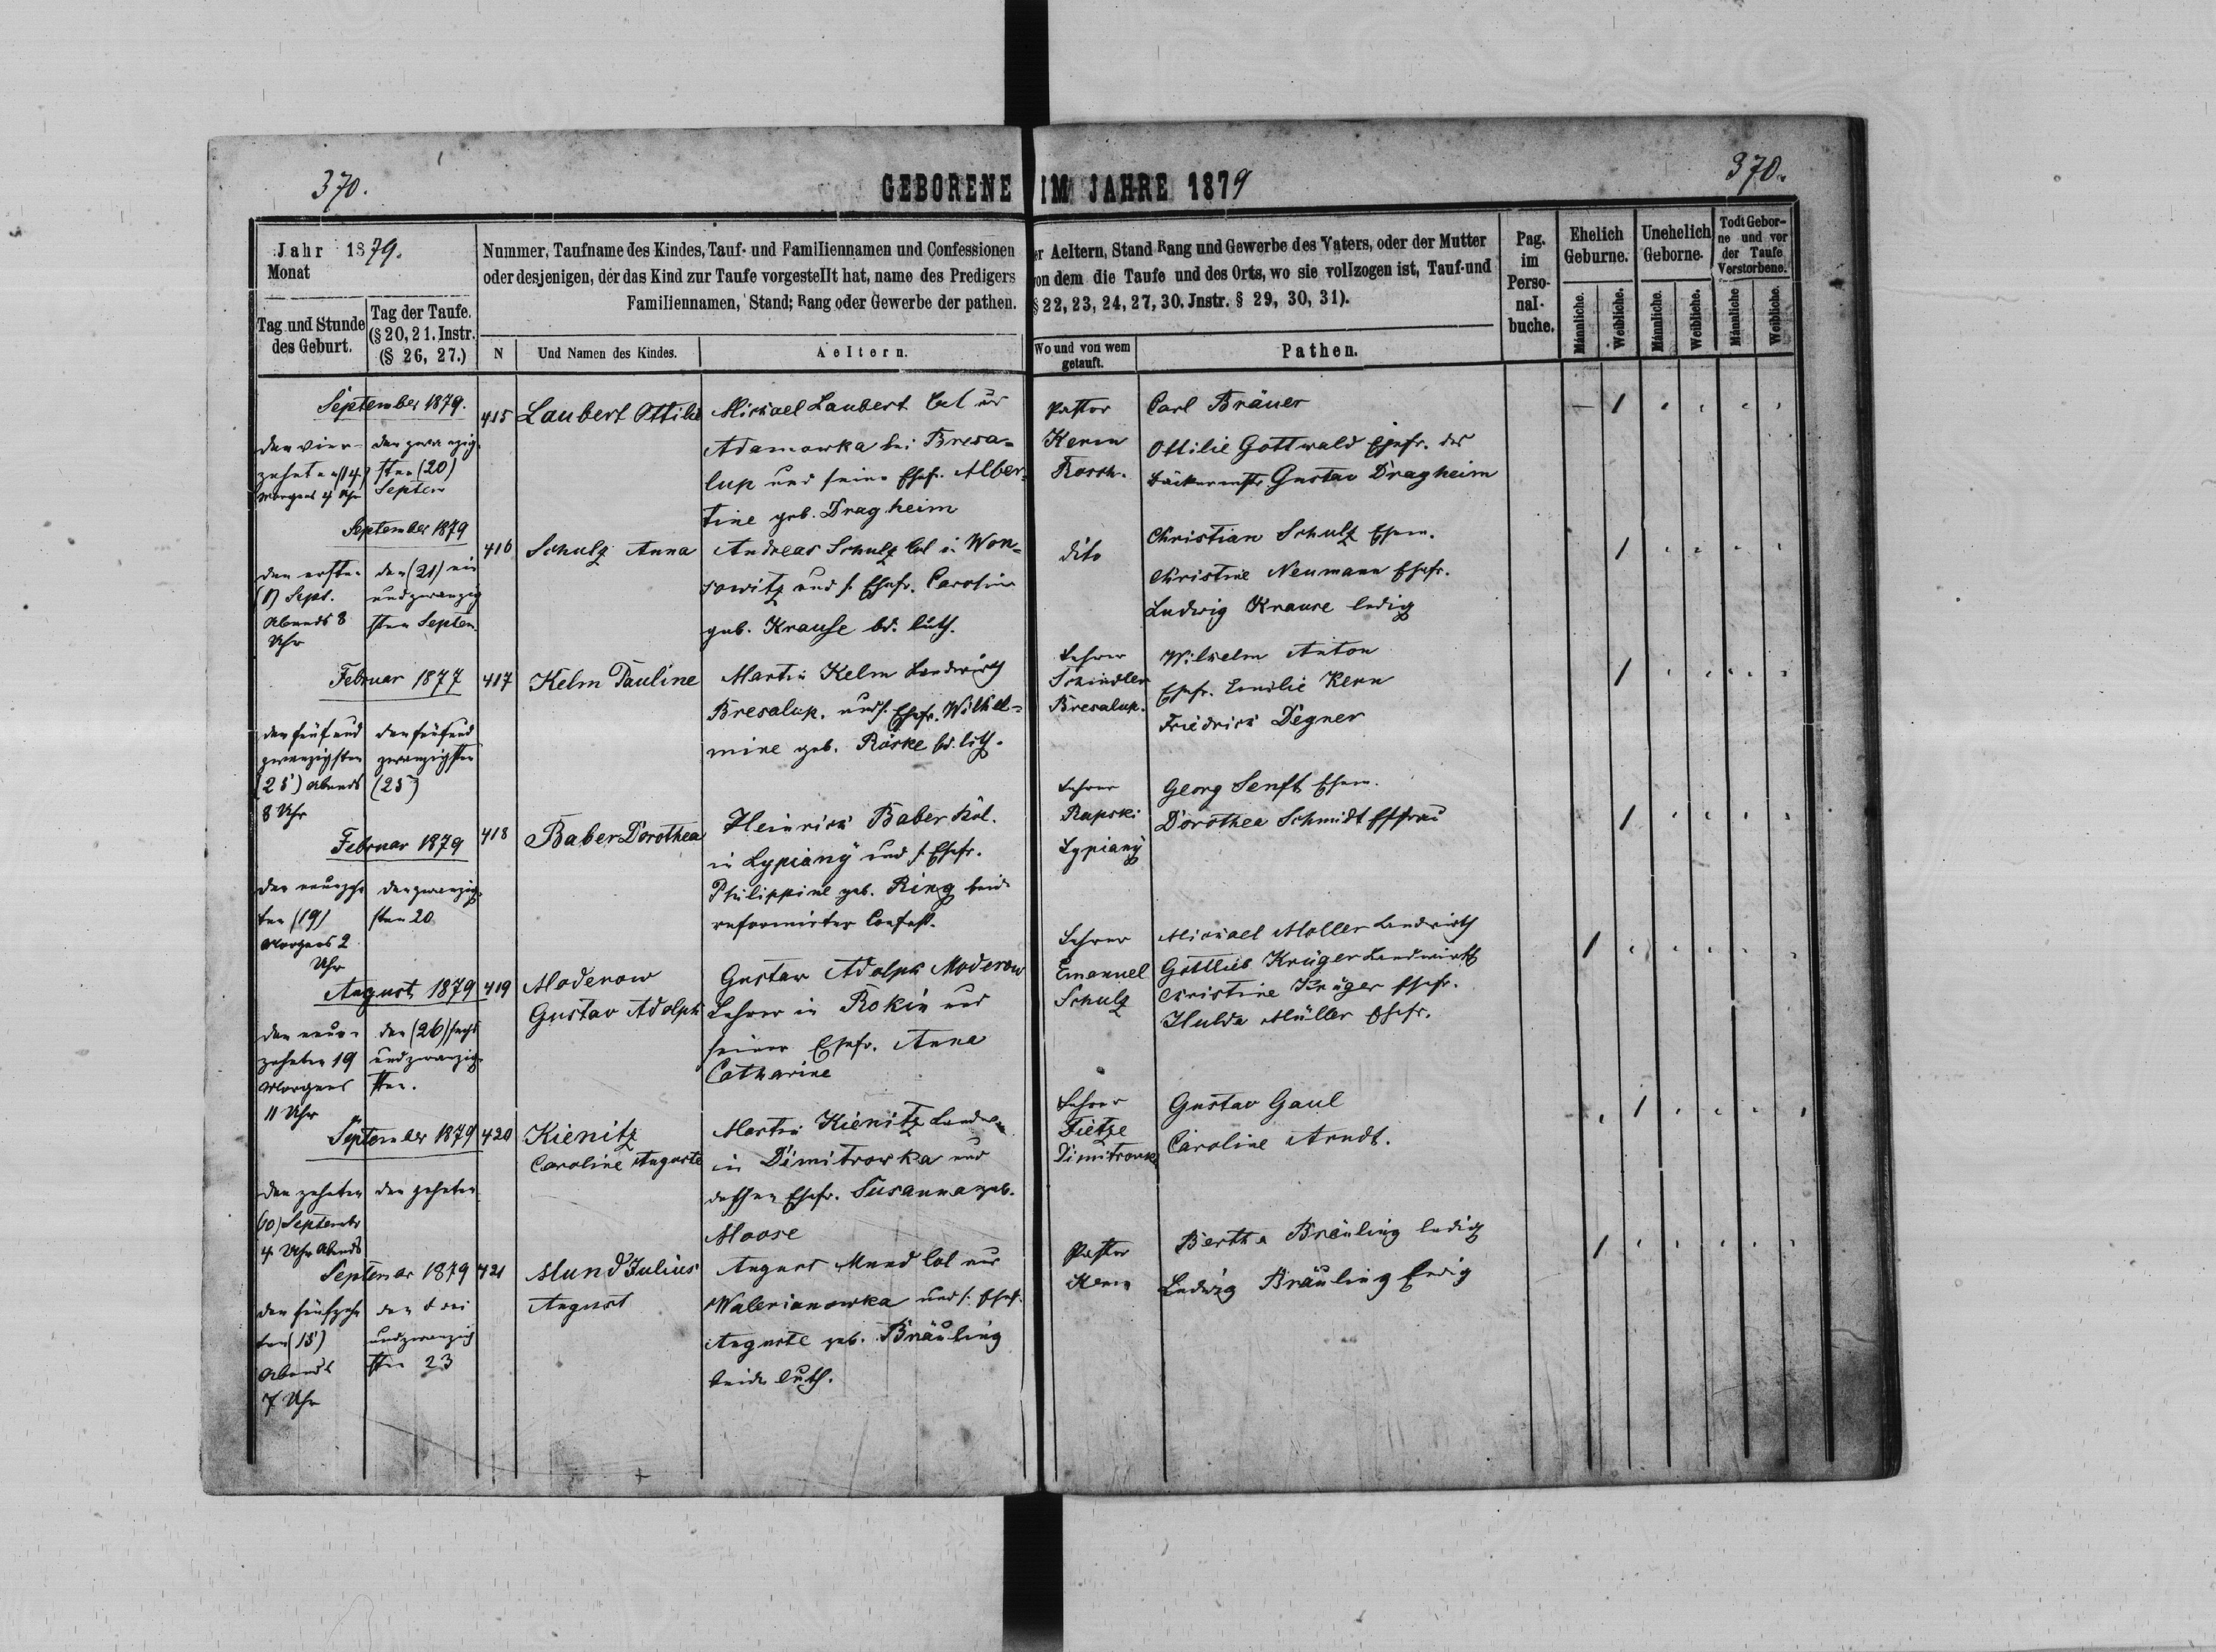 370.
GEBORENE IM JAHRE 1879
370.
Jahr 1879.
Monat
Tag und Stunde
des Geburt.
Tag der Taufe.
(§ 20, 21. Instr.
(§ 26, 27.)
Nummer, Taufname des Kindes, Tauf- und Familiennamen und Confessionen
oder desjenigen, der das Kind zur Taufe vorgestellt hat, name des Predigers
Familiennamen, Stand; Rang oder Gewerbe der pathen.
N
Und Namen des Kindes.
Aeltern.
er Aeltern, Stand Rang und Gewerbe des Vaters, oder der Mutter
von dem die Taufe und des Orts, wo sie vollzogen ist, Tauf-und
§ 22, 23, 24, 27, 30. Jnstr. § 29, 30, 31).
Wo und von wem
getauft.
Pathen.
Pag.
im
Perso-
nal-
buche.
Ehelich
Geburne.
Unehelich
Geborne.
Todt Gebor-
ne und vor
der Taufe
Verstorbene.
Männliche.
Weibliche.
Männliche.
Weibliche.
Männliche
Weibliche.
September 1879.
den vier-
zehnten (14.)
Morgens 4 Uhr
den zwanzig-
sten (20)
Septem
415
Laubert Ottilie
Michael Laubert Col aus
Adamowka bei Bresa-
lup und seine Ehefr. Alber-
tine geb. Dragheim
Pastor
Kern
Rossh.
Carl Bräuer
Ottilie Gottwald Ehefr. des
Bäckermstr Gustav Dragheim
September 1879
den ersten
(1) Sept.
Abends 8
Uhr
den (21) ein
und zwanzig
sten Septem.
416
Schulz Anna
Andreas Schulz Col in Won-
sowitz und s. Ehefr. Caroline
geb. Krause bd. luth.
dito
Christian Schulz Ehem.
Christine Neumann Ehefr.
Ludwig Krause ledig
Februar 1877
den fünf und
zwanzigsten
(25) Abends
8 Uhr
den fünf und
zwanzigsten
(25)
417
Kelm Pauline
Martin Kelm Landwirth
Bresalup. und s. Ehefr. Wilhel-
mine geb. Röske bd. luth.
Lehrer
Schindler
Bresalup.
Wilhelm Anton
Ehefr. Emilie Kern
Friedrich Degner
Februar 1879
den neunzehn
ten (19)
Morgens 2
Uhr
den zwanzig-
sten 20
418
Baber Dorothea
Heinrich Baber Kol.
in Lypianÿ und s. Ehefr.
Philippine geb. Ring beide
reformirter Confess.
Lehrer
Rapski
Lypianÿ
Georg Senft Ehem.
Dorothea Schmidt Ehfrau
August 1879
den neun-
zehnten 19
Morgens
11 Uhr
den (26) sechs
und zwanzig-
sten.
419
Moderow
Gustav Adolph
Gustav Adolph Moderow
Lehrer in Rokin und
seiner Ehefr. Anna
Catharine
Lehrer
Emanuel
Schulz
Michael Moller Landwirth
Gottlieb Krüger Landwirth
Christine Krüger Ehefr.
Hulda Müller Ehefr.
September 1879
den zehnten
(10) Septembr
4 Uhr Abends
den zehnten
420
Kienitz
Caroline Auguste
Martin Kienitz Landw.
in Dimitrowka und
dessen Ehefr. Susanna geb.
Moose
Lehrer
Tietze
Dimitrowka
Gustav Gaul
Caroline Arndt.
September 1879
den fünfzehn
ten (15)
Abends
7 Uhr
den drei
und zwanzig
sten 23
421
Mund Julius
August
August Mund Col aus
Walerianowka und s. Ehefr.
Auguste geb. Bräuling
beide luth.
Pastor
Kern
Bertha Bräuling ledig
Ludwig Bräuling ledig